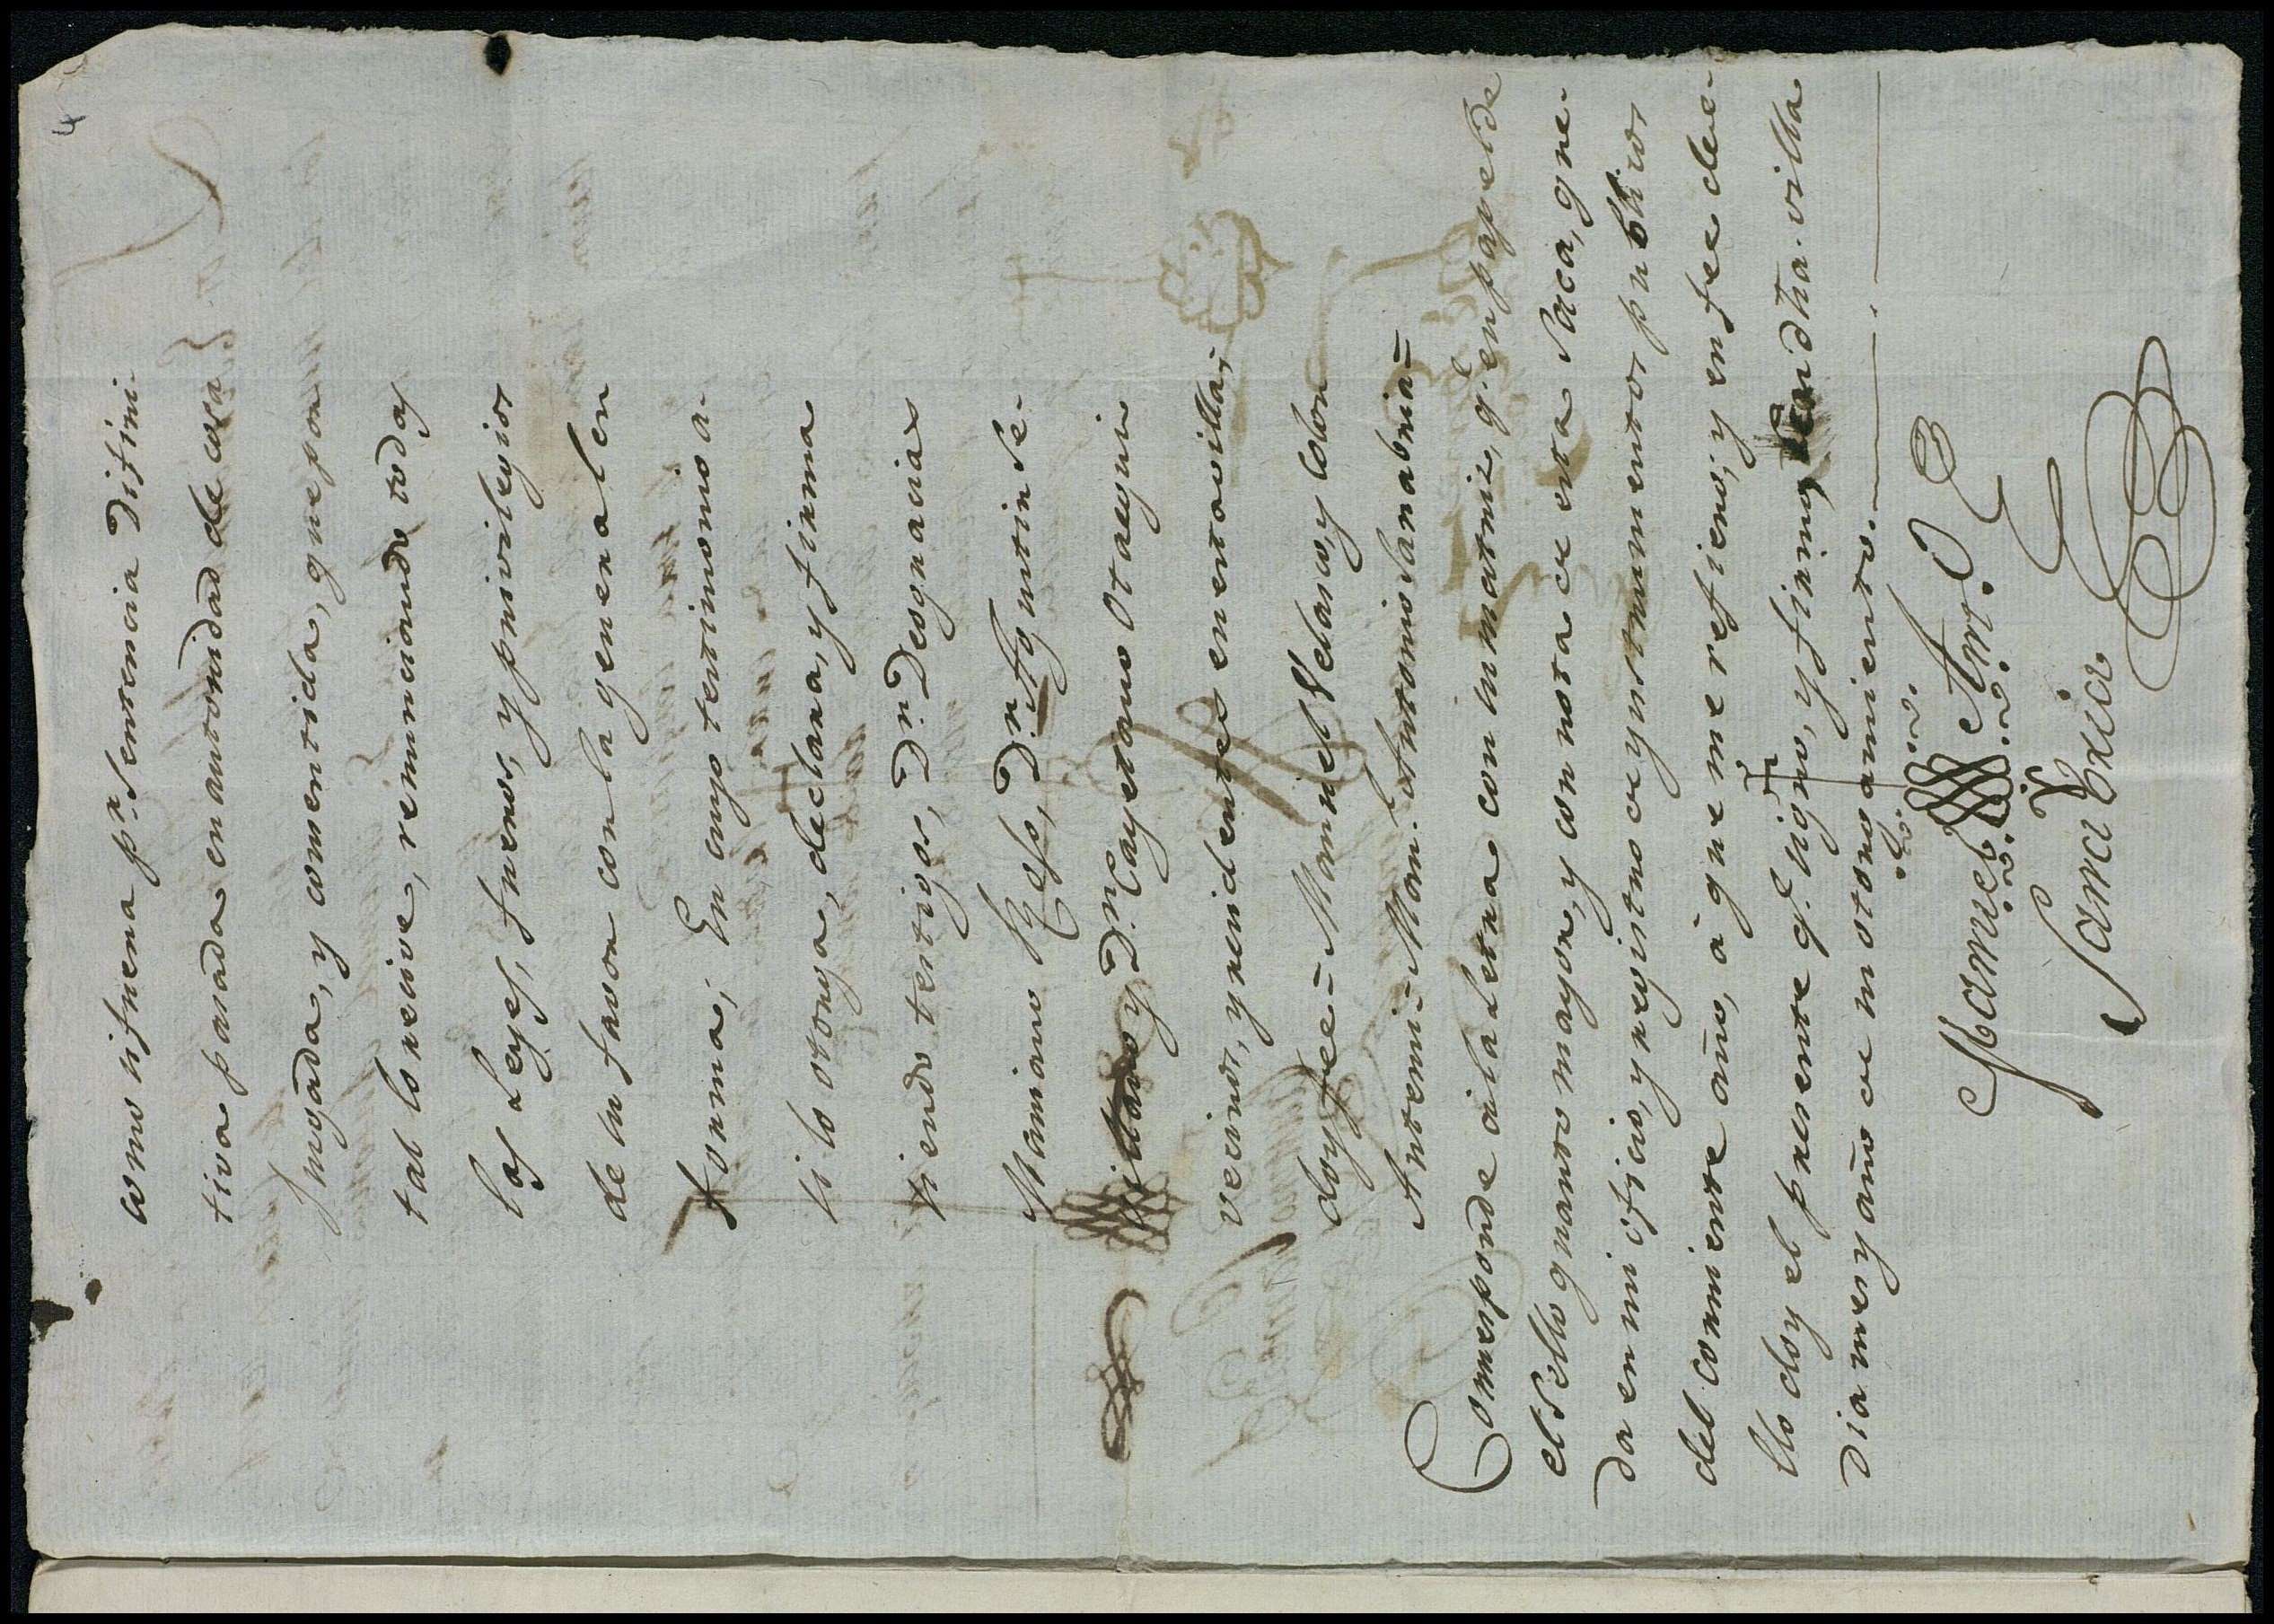 4
como si fuera pr. Sentencia Difini-
tiva pasada en autoridad de cosa
Jusgada, y consentida, que por
tal lo recive, renunciando todas
las Leyes, fueros, y privilegios
de su favor con la general en
forma; En cuyo testimonio a-
si lo otorga, declara, y firma
siendo testigos, Dn. Deogracias
Mariano Rofo, Dn. Agustin Se-
y Dn. Cayetano Otaegui
vecinos, y residentes en esta villa;
doy fee = Manuel Velasco, y Colon
Ante mi = Manl. Antonio Sanabria =
Corresponde a la Letra con su matriz, qe. en papel de
el Sello quarto mayor, y con nota de esta Saca, que-
da en mi oficio, y registro de ynstrumentos publicos
del corriente año, à que me refiero; y en fee de e-
llo doy el presente qe. signo, y firmo, en dha. villa
Dia mes y año de su otorgamiento.
Manuel Antto.
Sanabria